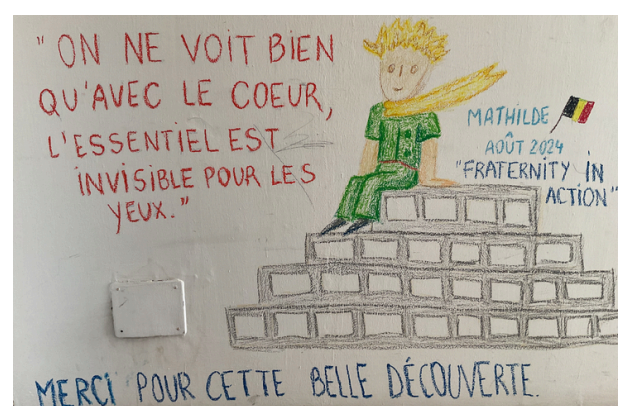 "ON NE VOIT BIEN
QU'AVEC LE COEUR,
L'ESSENTIEL EST
INVISIBLE POUR LES
YEUX."
MATHILDE
AOÛT 2024
"FRATERNITY IN
ACTION"
MERCI POUR CETTE BELLE DÉCOUVERTE.